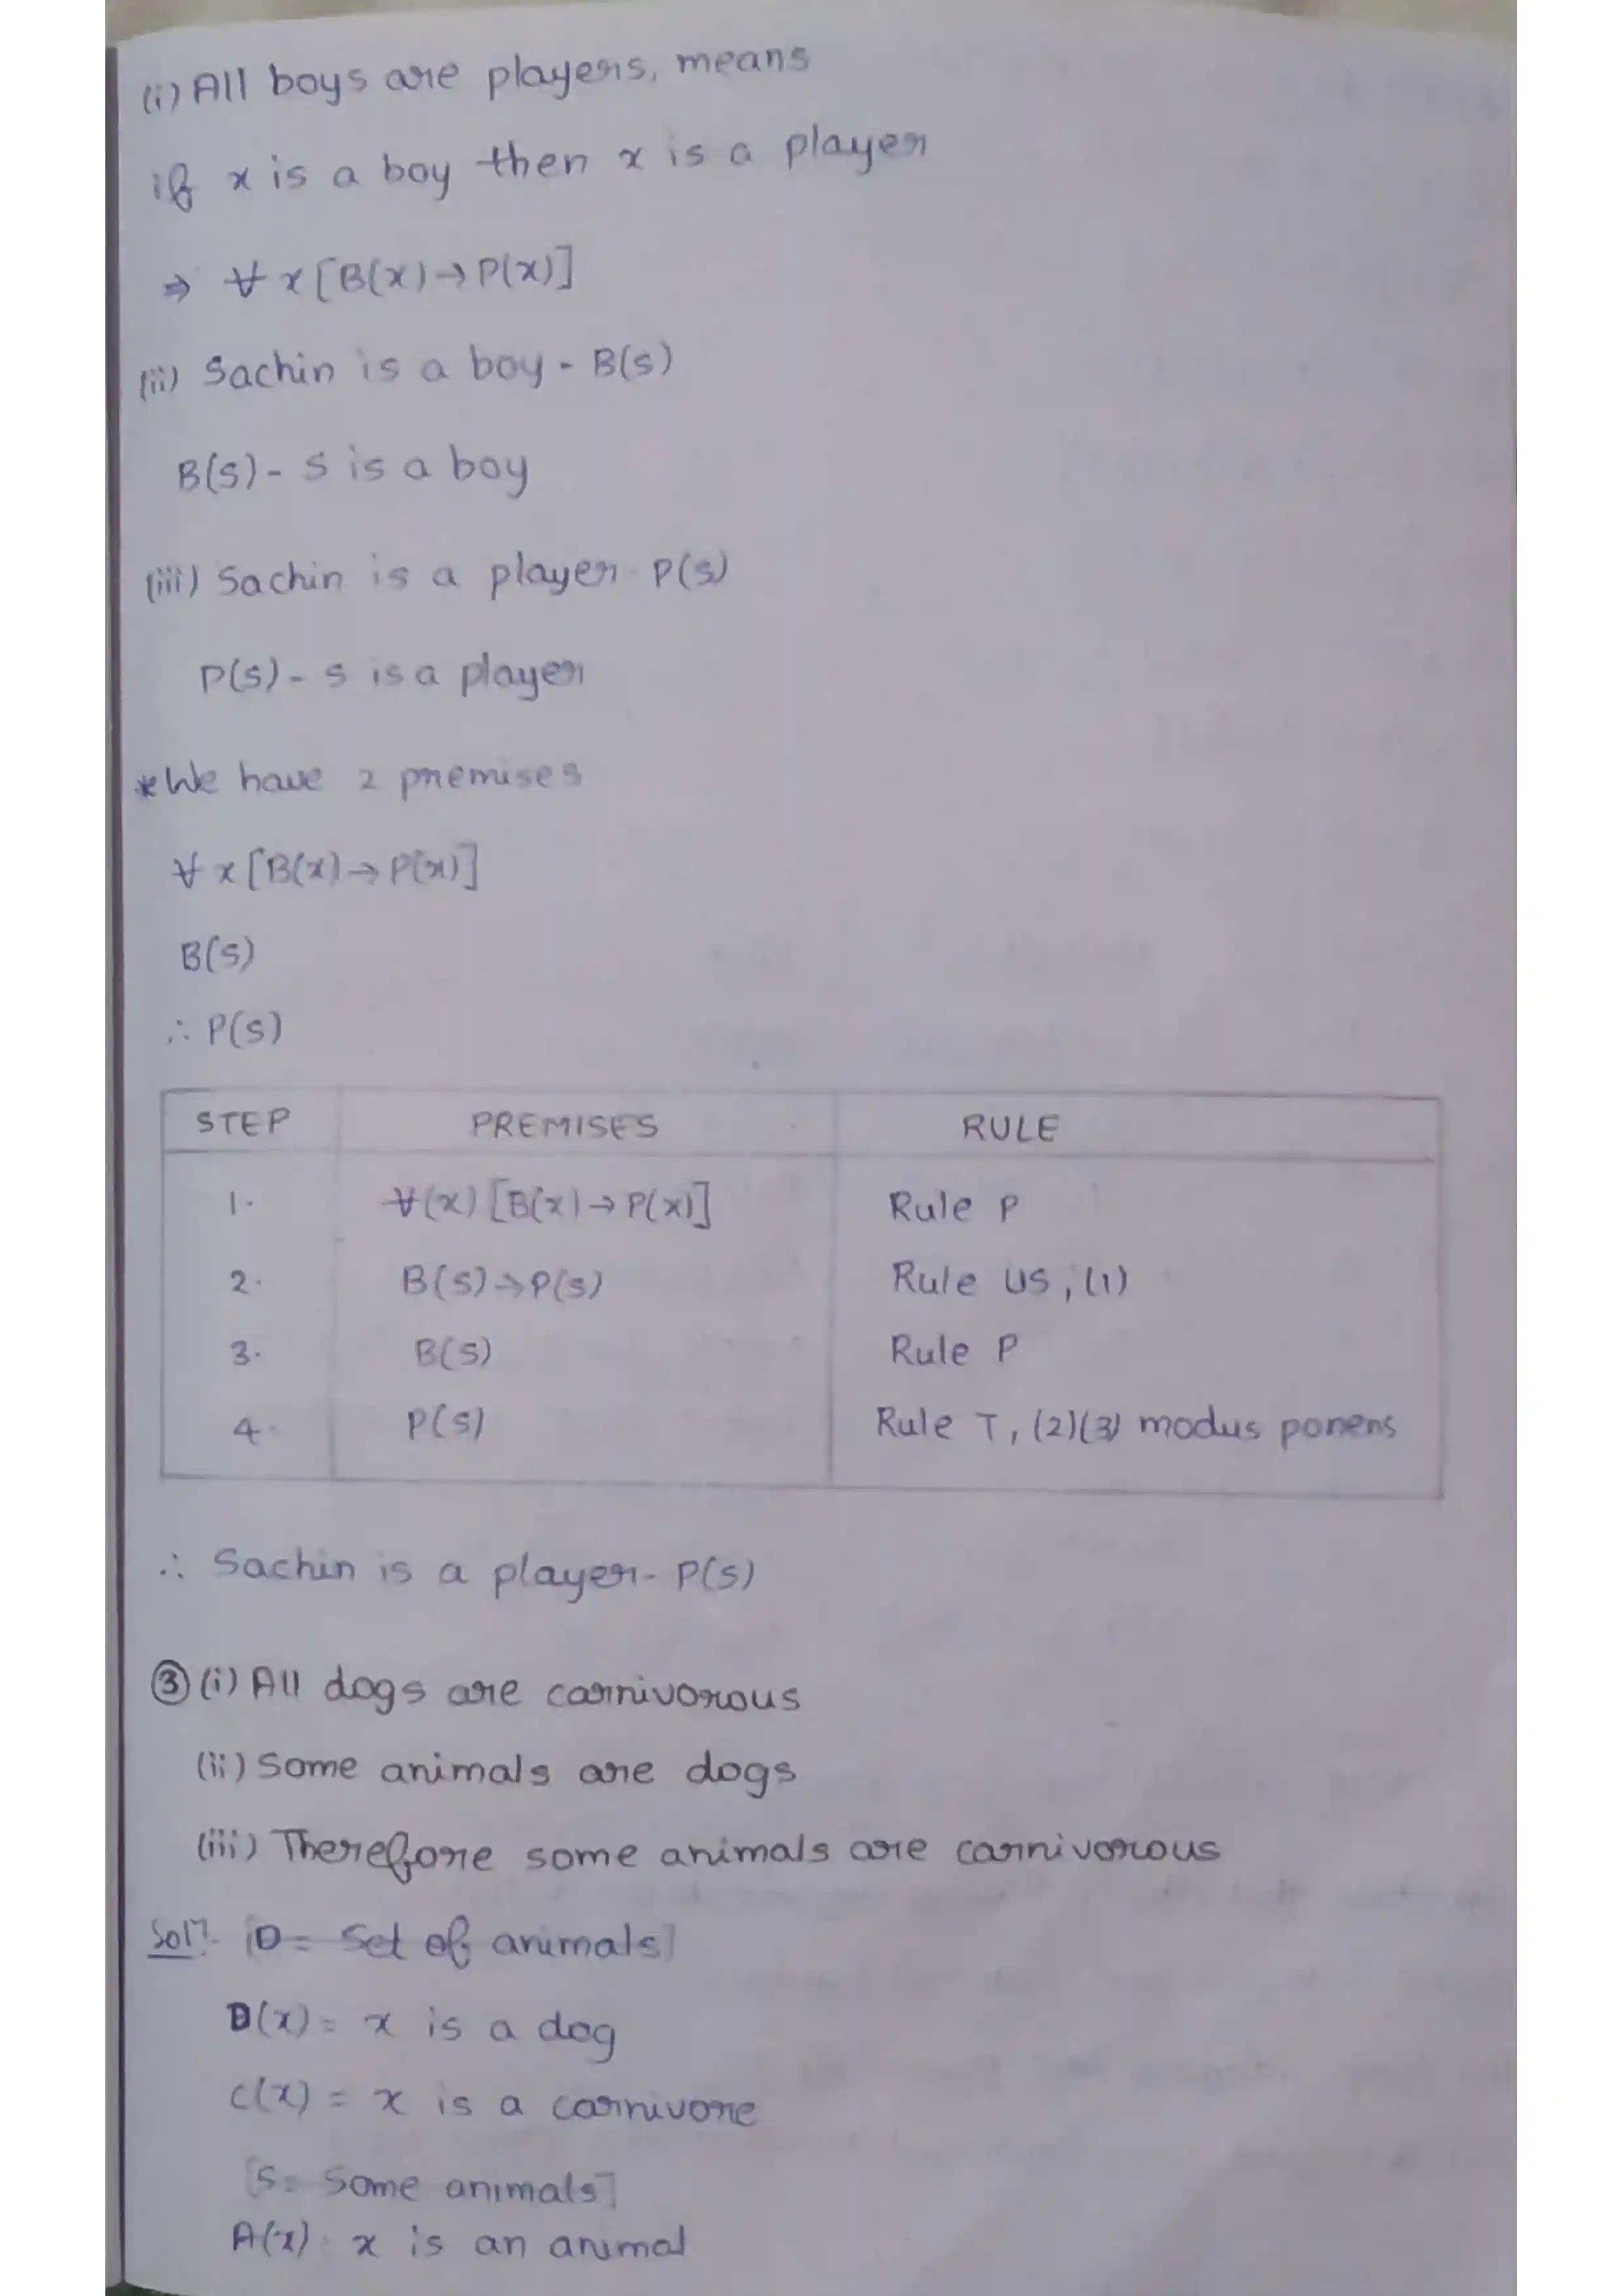 (i) All boys are players, means
if x is a boy then x is a player
⇒ ∀ x [B(x) → P(x)]
(ii) Sachin is a boy - B(s)
B(s) - s is a boy
(iii) Sachin is a player - P(s)
P(s) - s is a player
* We have 2 premises
∀ x [B(x) → P(x)]
B(s)
∴ P(s)
STEP PREMISES RULE
1. ∀(x) [B(x) → P(x)] Rule P
2. B(s) → P(s) Rule US, (1)
3. B(s) Rule P
4. P(s) Rule T, (2)(3) modus ponens
∴ Sachin is a player - P(s)
③ (i) All dogs are carnivorous
(ii) Some animals are dogs
(iii) Therefore some animals are carnivorous
Solⁿ:- [D = Set of animals]
D(x) = x is a dog
C(x) = x is a carnivore
[S = Some animals]
A(x) : x is an animal